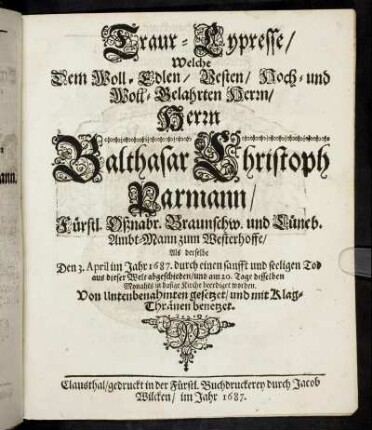 Traur-Cypresse/
Welche
Dem Woll-Edlen/ Vesten/ Hoch- und
Woll-Gelahrten Herrn/
Herrn
Balthasar Christoph
Narmann/
Fürstl. Oßnabr. Braunschw. und Lüneb.
Ambt-Mann zum Westerhoffe/
Als derselbe
Den 3. April im Jahr 1687. durch einen sanfft und seeligen Tod
aus dieser Welt abgeschieden/ und am 20. Tage desselben
Monahts in hasige Kirche beerdiget worden.
Von Untenbenahmten gesetzet/ und mit Klag-
Thränen benetzet.
Clausthal/ gedruckt in der Fürstl. Buchdruckerey durch Jacob
Wilcken/ im Jahr 1687.